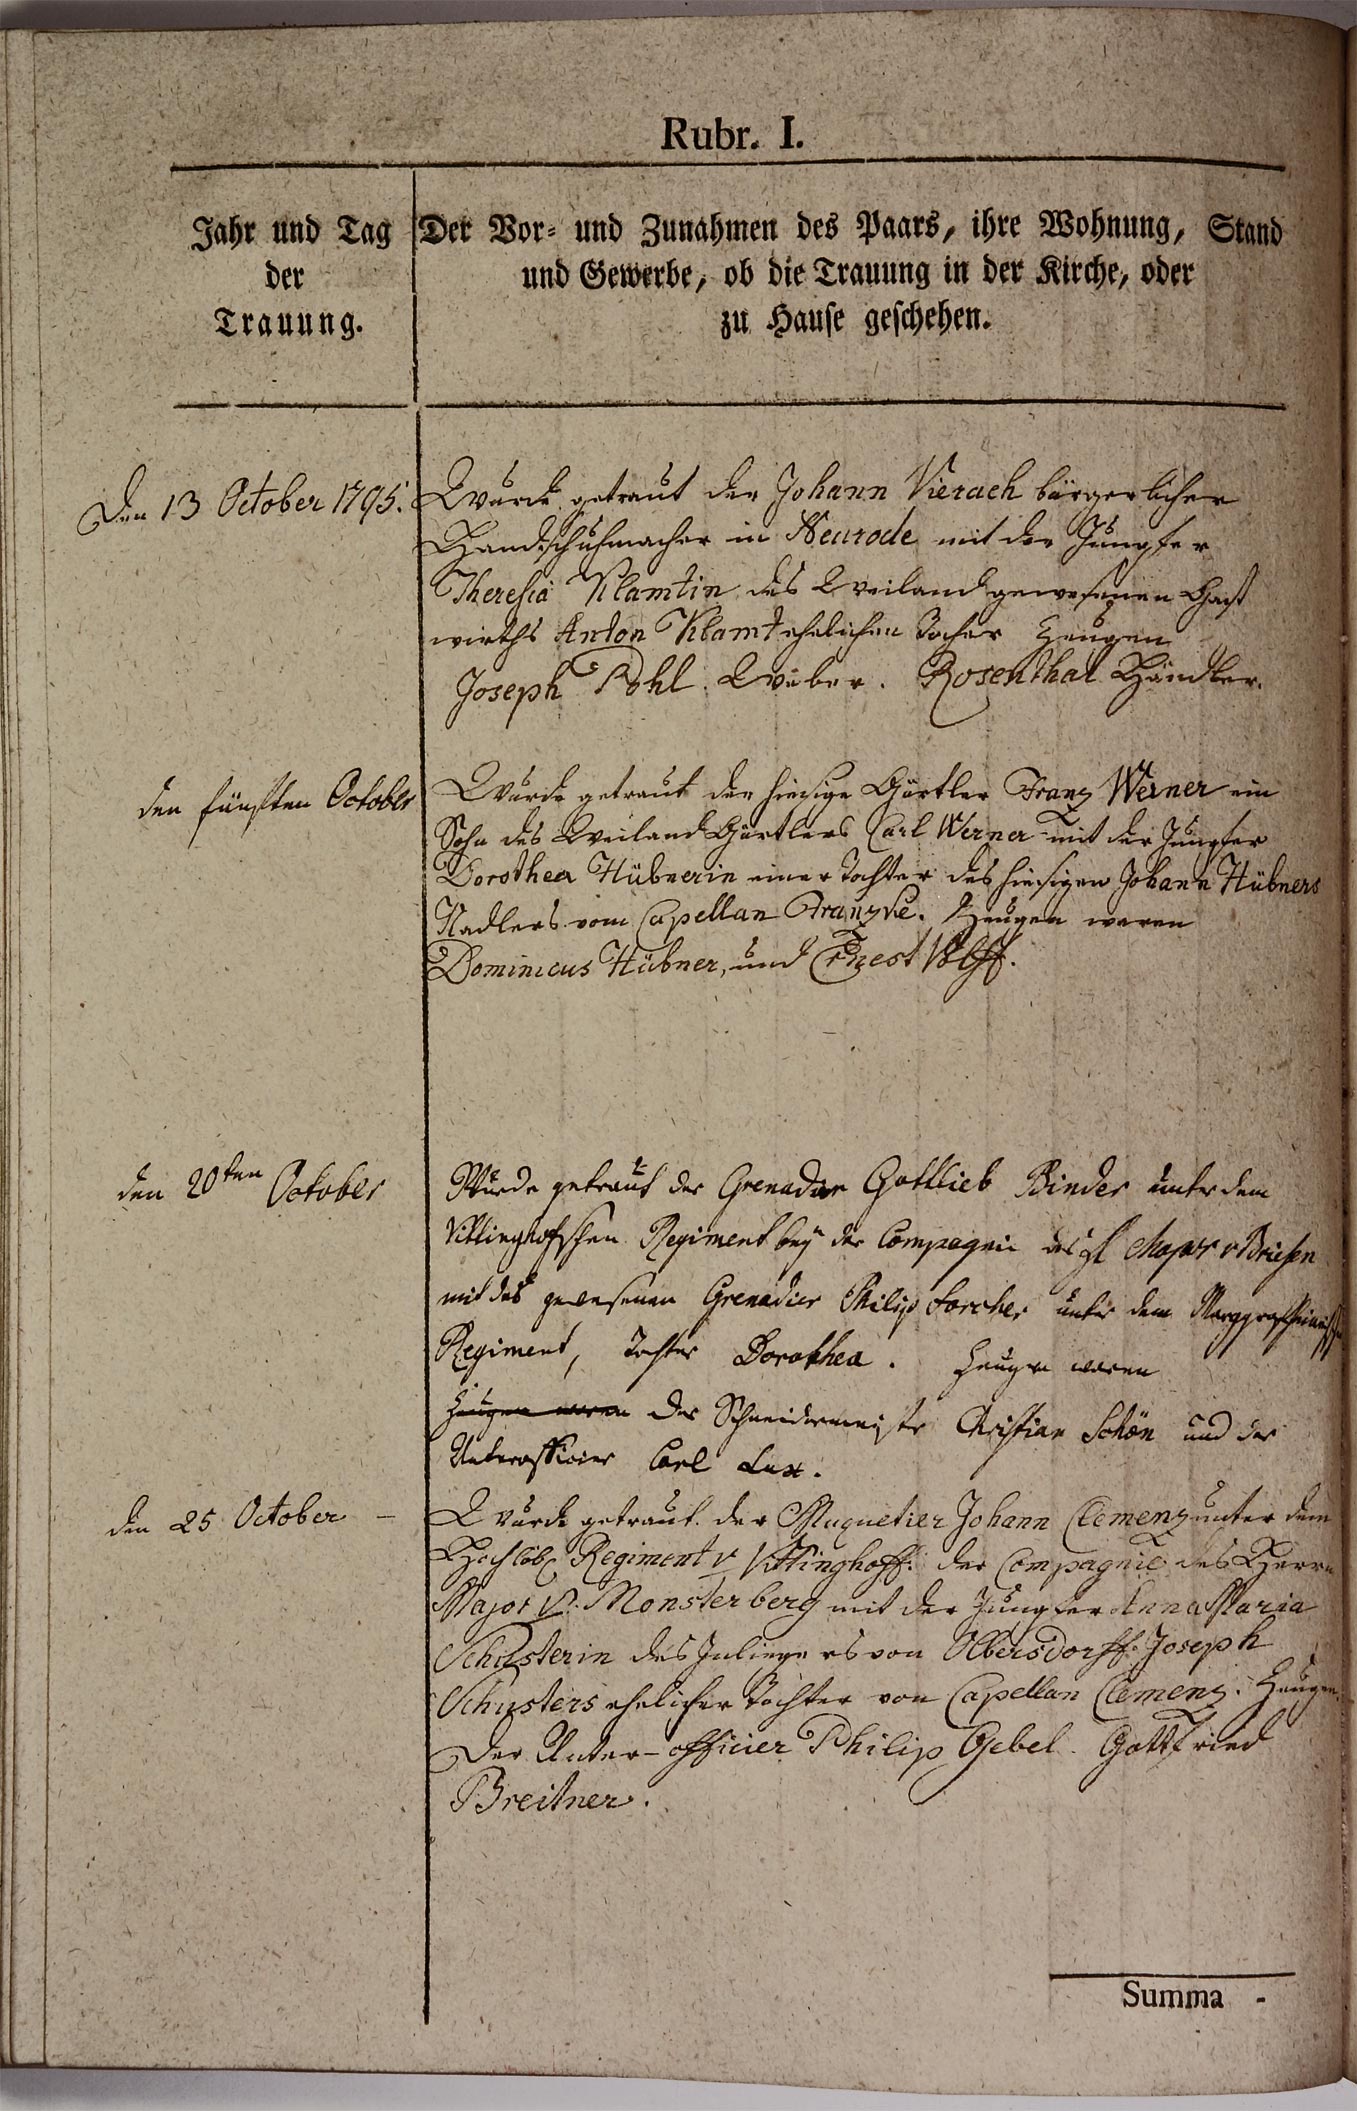 Rubr. I.
Jahr und Tag
der
Trauung.
Der Vor- und Zunahmen des Paars, ihre Wohnung, Stand
und Gewerbe, ob die Trauung in der Kirche, oder
zu Hause geschehen.
Den 13 October 1795.
Wurde getraut der Johann Vierach bürgerlicher
Handschuhmacher in Neurode mit der Jungfer
Theresia Klamtin des Weiland gewesenen Gast
wirths Anton Klamt ehelichen Tocher Zeugen
Joseph Pohl. Weber. Rosenthal Händler.
den fünften October
Wurde getraut der hiesige Gürtler Franz Werner ein
Sohn des Weiland Gürtlers Carl Werner mit der Jungfer
Dorothea Hübnerin einer Tochter des hiesigen Johann Hübners
Nadlers vom Capellan Franzke. Zeugen waren
Dominicus Hübner, und Ernest Wolff.
den 20ten October
Wurde getraut der Grenadier Gottlieb Binder unter dem
Vittinghofschen Regiment bey der Compagnie des H Major v Briesen
mit des gewesenen Grenadier Philip Forcher unter dem
Regiment, Tochter Dorothea. Zeugen waren
Zeugen waren der Schneidermeister Christian Schön und der
Unterofficier Carl Lux.
den 25 October -
Wurde getraut der Muquetier Johann Clemenz unter dem
Hochlöbl Regiment v Vittinghoff: der Compagnie des Herrn
Major v. Monsterberg mit der Jungfer Anna Maria
Schusterin des Inliegers von Olbersdorff: Joseph
Schusters ehelicher Tochter von Capellan Clemenz. Zeugen.
Der Unter-officier Philip Gebel. Gottfried
Breitner.
Summa -